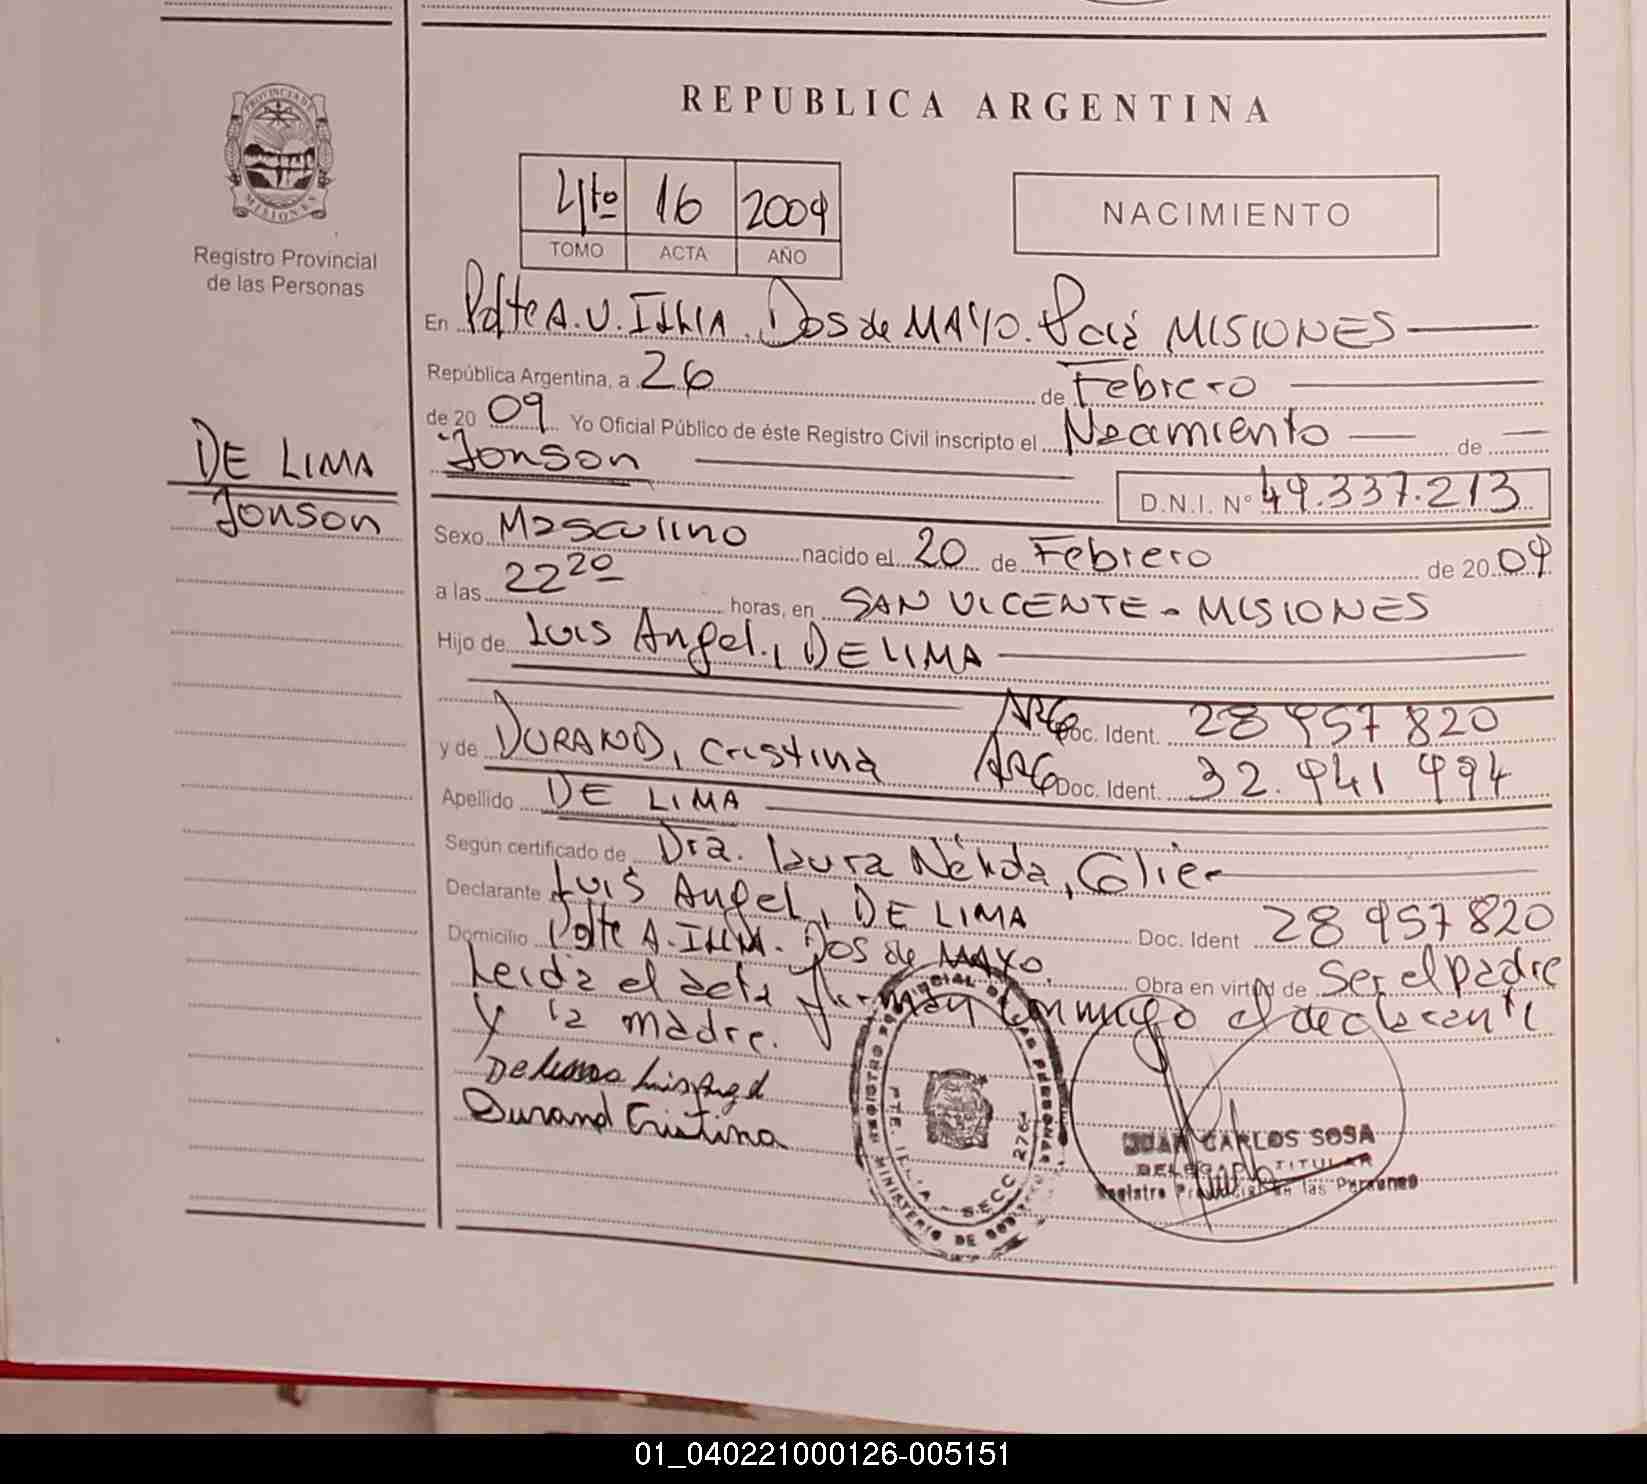 REPUBLICA ARGENTINA
PROVINCIA DE
MISIONES
Registro Provincial
de las Personas
4to 16 2009
TOMO ACTA AÑO
NACIMIENTO
En Pdte A.U. ILLIA. Dos de MAYO. Pcia MISIONES
República Argentina, a 26 de Febrero
de 2009 Yo Oficial Público de éste Registro Civil inscripto el Nacamiento de
Jonson
D.N.I. Nº 49.337.213
DE LIMA
Jonson
Sexo Masculino nacido el 20 de Febrero de 2009
a las 22 20 horas, en SAN VICENTE - MISIONES
Hijo de Luis Angel, DE LIMA
ARG Doc. Ident. 28 957 820
y de DURAND, Cristina ARG Doc. Ident. 32.941 994
Apellido DE LIMA
Según certificado de Dra. Laura Nélida,
Declarante Luis Angel, DE LIMA Doc. Ident 28 957 820
Domicilio Pdte A. ILLIA. Dos de MAYO. Obra en virtud de Ser el padre
Leida el acta firman conmigo el declarante
y la madre.
De Lima Luis Angel
Durand Cristina
REGISTRO PROVINCIAL DE LAS PERSONAS
PTE ILLIA - SECC 276
MINISTERIO DE GOBIERNO
JUAN CARLOS SOSA
DELEGADO TITULAR
Registro Provincial de las Personas
01_040221000126-005151